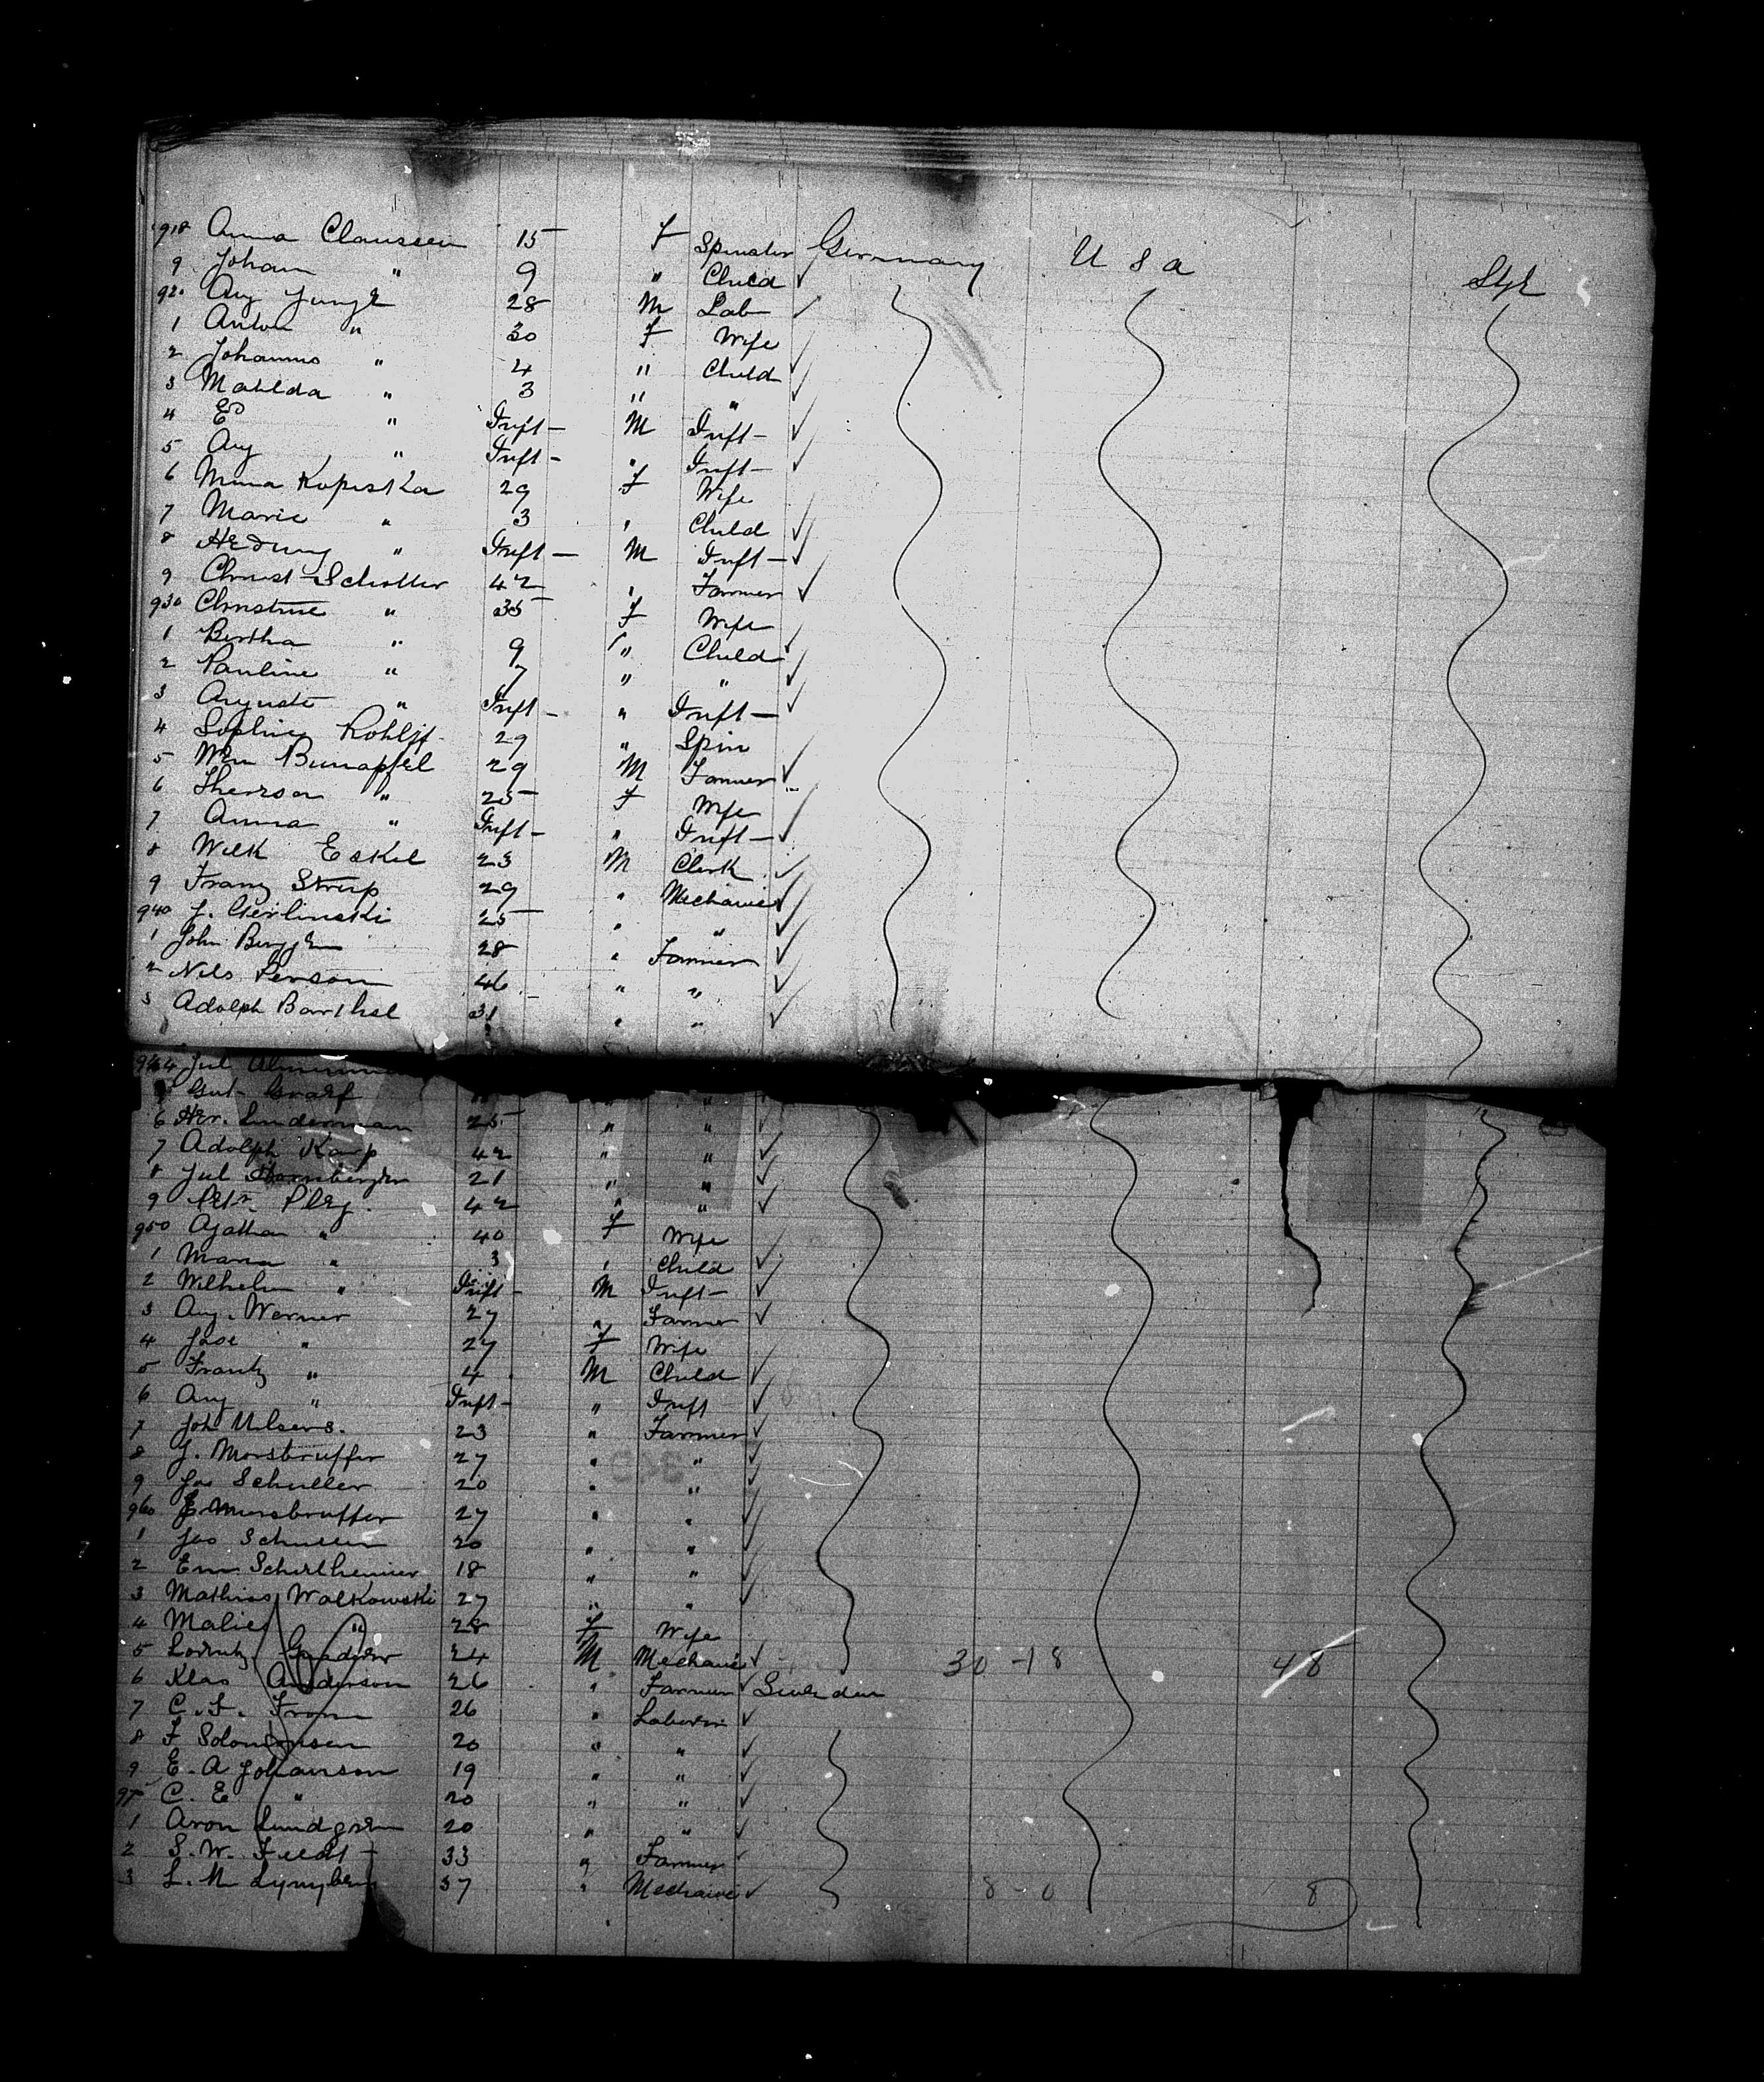 918 Anna Claussen 15 F Spinster Germany U S a Stge
9 Johan " 9 " Child
920 Aug Jungk 28 M Lab
1 Anton " 30 F Wife
2 Johannes " 4 " Child
3 Matilda " 3 " "
4 E " Inft - M Inft -
5 Aug " Inft - " Inft -
6 Minna Kopiska 29 F Wife
7 Marie " 3 " Child
8 " Inft - M Inft -
9 Christ Schotter 42 " Farmer
930 Christine " 35 F Wife
1 Bertha " 9 " Child
2 Pauline " 7 " "
3 Auguste " Inft - " Inft -
4 Sophie 29 " Spin
5 Wm 29 M Farmer
6 " 25 F Wife
7 Anna " Inft - " Inft -
8 Wilk Eskil 23 M Clerk
9 Franz Strup 29 " Mechanic
940 J. Gerlinski 25 " "
1 John 28 " Farmer
2 Nels Person 46 " "
3 Adolph Barthel 31 " "
944 Jul
5 Gut- Graef " "
6 Hr. Lindermann 25 " "
7 Adolph Karp 42 " "
8 Jul 21 " "
9 Petr. 42 " "
950 Agatha " 40 F Wife
1 Maria " 3 " Child
2 Wilhelm " Inft - M Inft -
3 Aug. Werner 27 " Farmer
4 " 27 F Wife
5 Frantz " 4 M Child
6 Aug " Inft - " Inft
7 Joh 23 " Farmer
8 J. Morsbruffer 27 " "
9 Jos Schuller 20 " "
960 E Morsbruffer 27 " "
1 Jos Schuller 20 " "
2 Em 18 " "
3 Mathias Walkowski 27 " "
4 Malie " 28 F Wife
5 Lorentz 24 M Mechanic 30 - 18 48
6 Klas Anderson 26 " Farmer Sweden
7 C. F. From 26 " Laborer
8 F Solomonsen 20 " "
9 E. A Johanson 19 " "
97 C. E " 20 " "
1 Aron Lundgren 20 " "
2 S. W. 33 " Farmer
3 L. M 37 " Mechanic 8 - 0 8